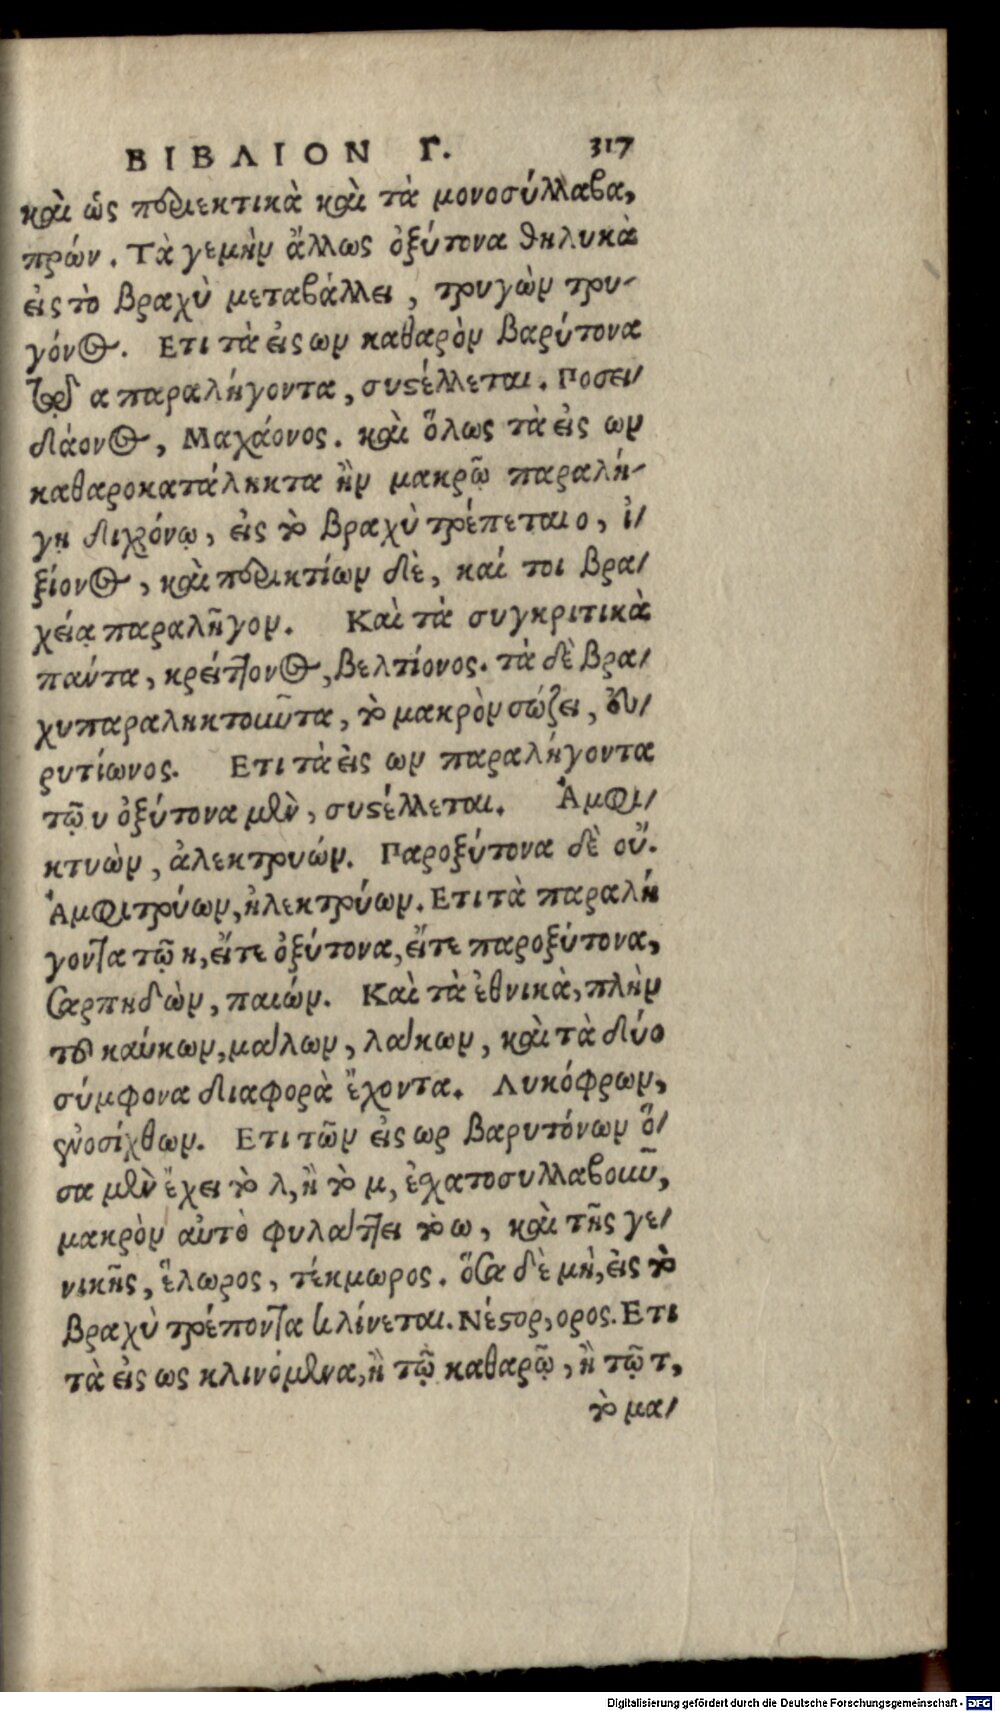 ΒΙΒΛΙΟΝ Γ. 317
καὶ ὡς περιεκτικὰ καὶ τὰ μονοσύλλαβα,
πρών. Τὰ γεμὴν ἄλλως ὀξύτονα θηλυκὰ
εἰς τὸ βραχὺ μεταβάλλει, τρυγὼν τρυ-
γόνος. Ετι τὰ εἰς ων καθαρὸν βαρύτονα
τῷ α παραλήγοντα, συστέλλεται. Ποσει/
δάονος, Μαχάονος. καὶ ὅλως τὰ εἰς ων
καθαροκατάληκτα ἢν μακρῷ παραλή-
γῃ διχρόνῳ, εἰς τὸ βραχὺ τρέπεται ο, ἰ/
ξίονος, καὶ περικτίων δὲ, καί τοι βρα/
χείᾳ παραλῆγον. Καὶ τὰ συγκριτικὰ
πάντα, κρείττονος, βελτίονος. τὰ δὲ βρα/
χυπαραληκτοιοῦτα, τὸ μακρὸν σώζει, Εὐ/
ρυτίωνος. Ετι τὰ εἰς ων παραλήγοντα
τῷ υ ὀξύτονα μὲν, συστέλλεται. Ἀμφι/
κτυὼν, ἀλεκτρυών. Παροξύτονα δὲ οὔ.
Ἀμφιτρύων, ἠλεκτρύων. Ετι τὰ παραλή
γοντα τῷ η, εἴτε ὀξύτονα, εἴτε παροξύτονα,
Σαρπηδὼν, παιών. Καὶ τὰ ἐθνικὰ, πλὴν
τοῦ καύκων, μάγλων, λάκων, καὶ τὰ δύο
σύμφονα διαφορὰ ἔχοντα. Λυκόφρων,
ἐνοσίχθων. Ετι τῶν εἰς ωρ βαρυτόνων ὅ/
σα μὲν ἔχει τὸ λ, ἢ τὸ μ, ἐχατοσυλλαβοιοῦ,
μακρὸν αὐτὸ φυλάττει τὸ ω, καὶ τῆς γε/
νικῆς, ἕλωρος, τέκμωρος. ὅσα δὲ μὴ, εἰς τὸ
βραχὺ τρέποντα κλίνεται. Νέστορ, ορος. Ετι
τὰ εἰς ως κλινόμενα, ἢ τῷ καθαρῷ, ἢ τῷ τ,
τὸ μα/
Digitalisierung gefördert durch die Deutsche Forschungsgemeinschaft - DFG